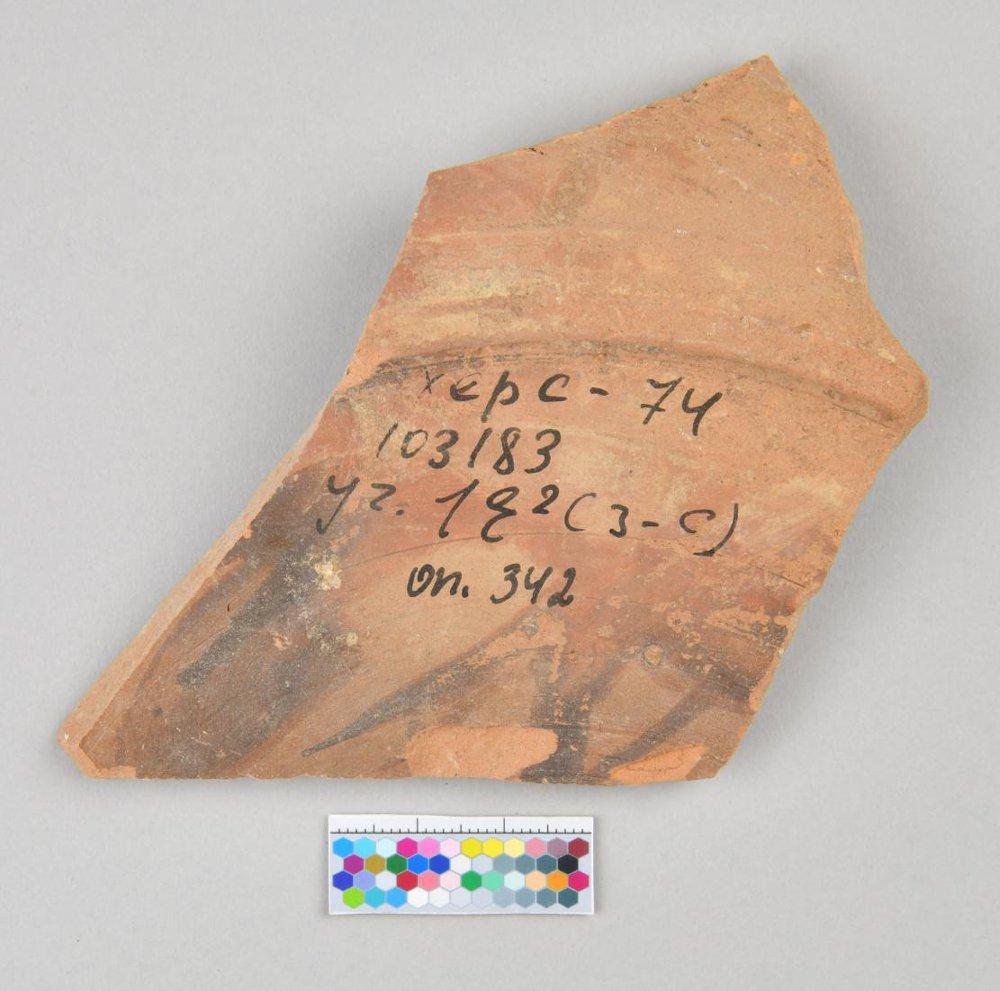 херс - 74
103183
уг. 1 g² (з-с)
оп. 342